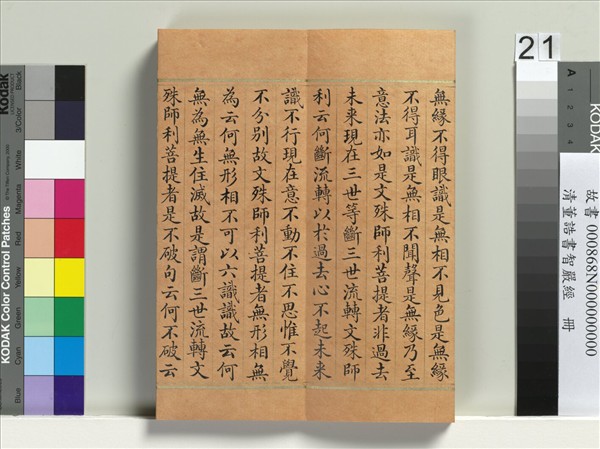 無緣不得眼識是無相不見色是無緣
不得耳識是無相不聞聲是無緣乃至
意法亦如是文殊師利菩提者非過去
未来現在三世等斷三世流轉文殊師
利云何斷流轉以於過去心不起未来
識不行現在意不動不住不思惟不覺
不分别故文殊師利菩提者無形相無
為云何無形相不可以六識識故云何
無為無生住滅故是謂斷三世流轉文
殊師利菩提者是不破句云何不破云
21
故書 000868N000000000
清董誥書智嚴經 冊
A 1 2 3 4
KODAK
Kodak
KODAK Color Control Patches
Black
3/Color
White
Magenta
Red
Yellow
Green
Cyan
Blue